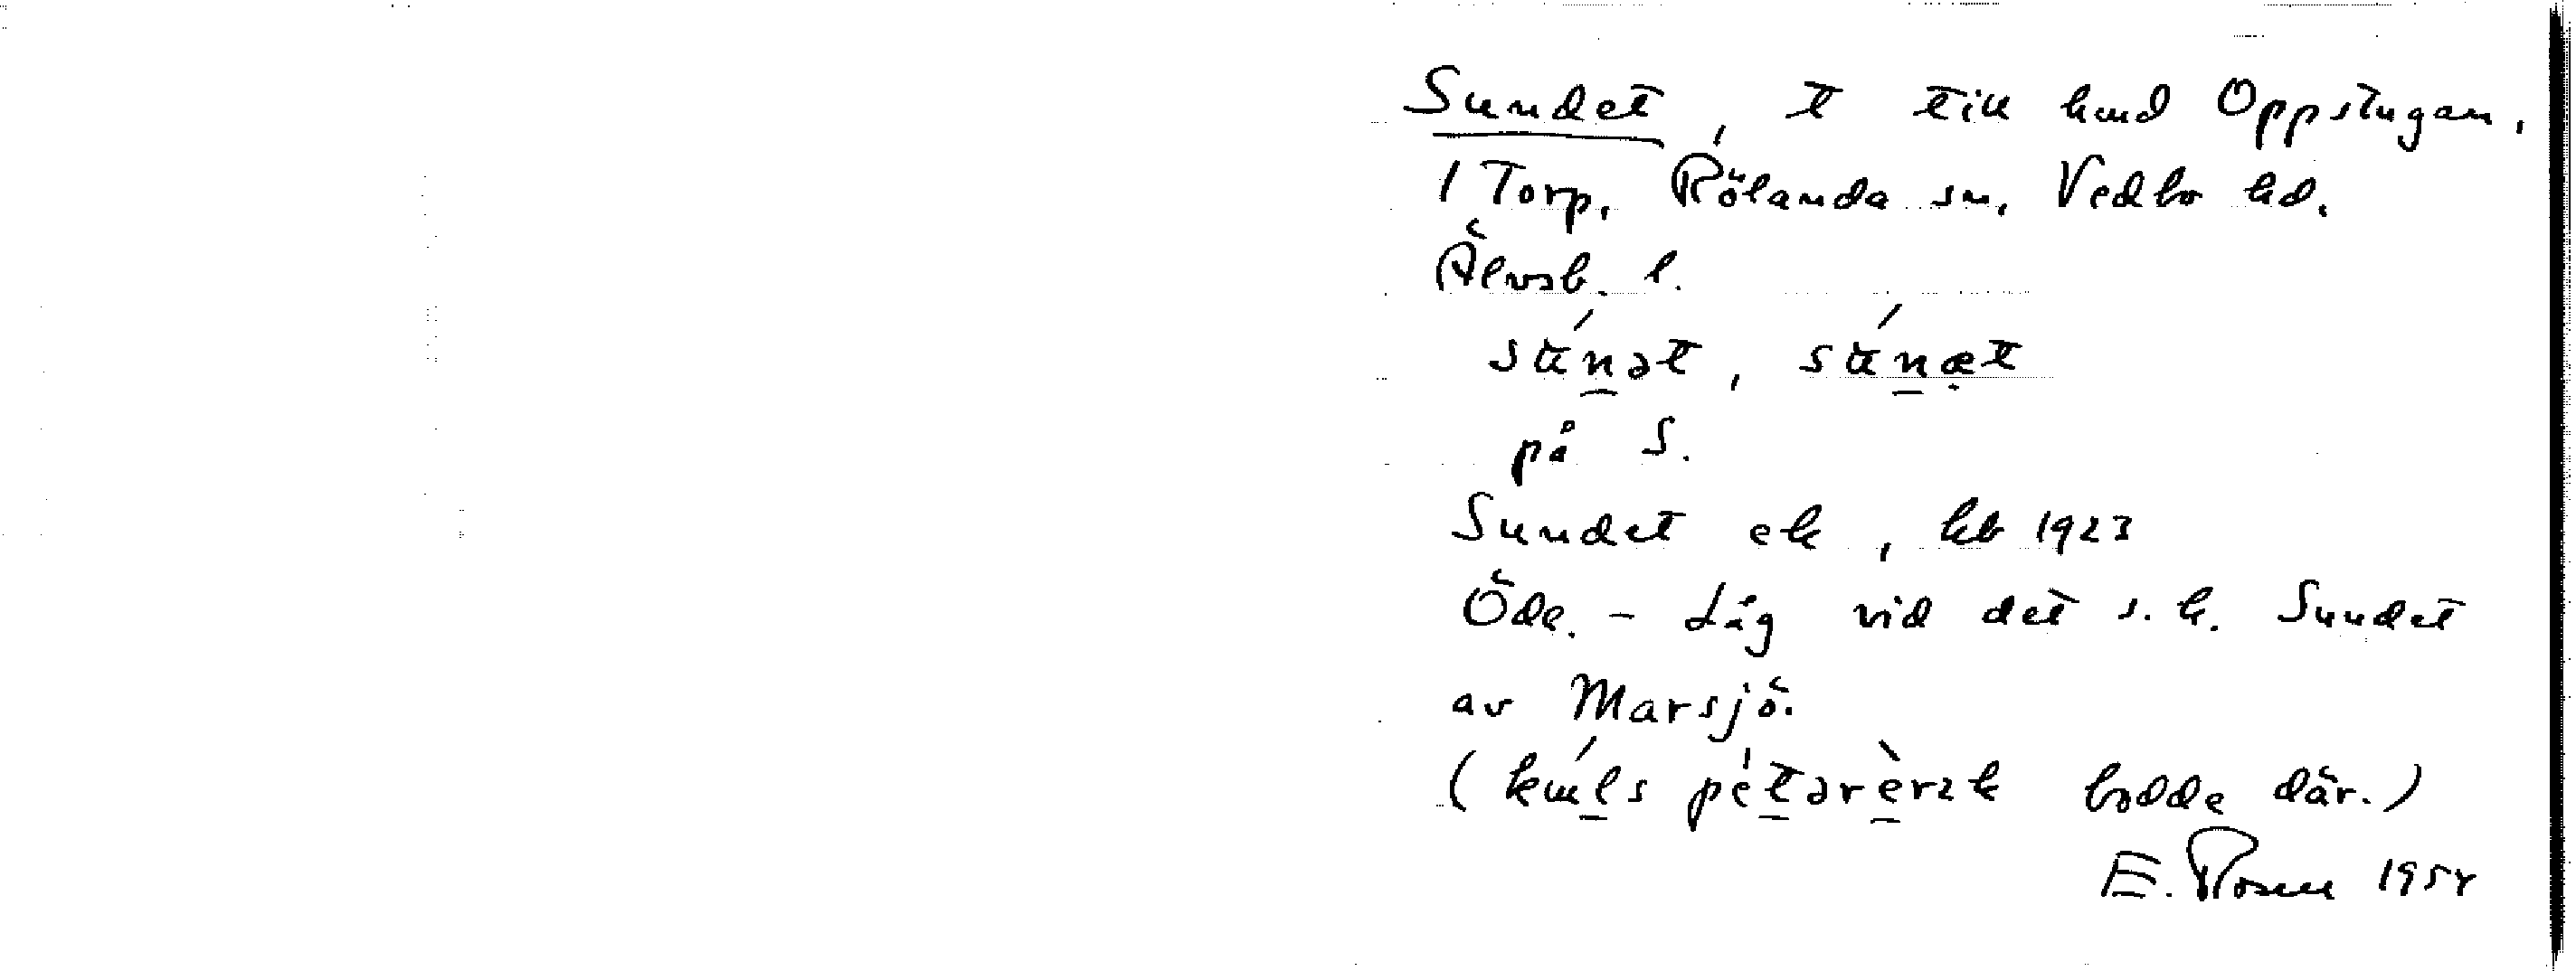 Sundet, t till hmd Oppstugan,
1 Torp, Rölanda sn, Vedbo hd.
Älvsb. l.
súnət, súnæt
på S.
Sundet ek, kb 1923
Öde. - Låg vid det s.k. Sundet
av Marsjö.
( pétərèrɪk bodde där.)
E. Rosen 1954